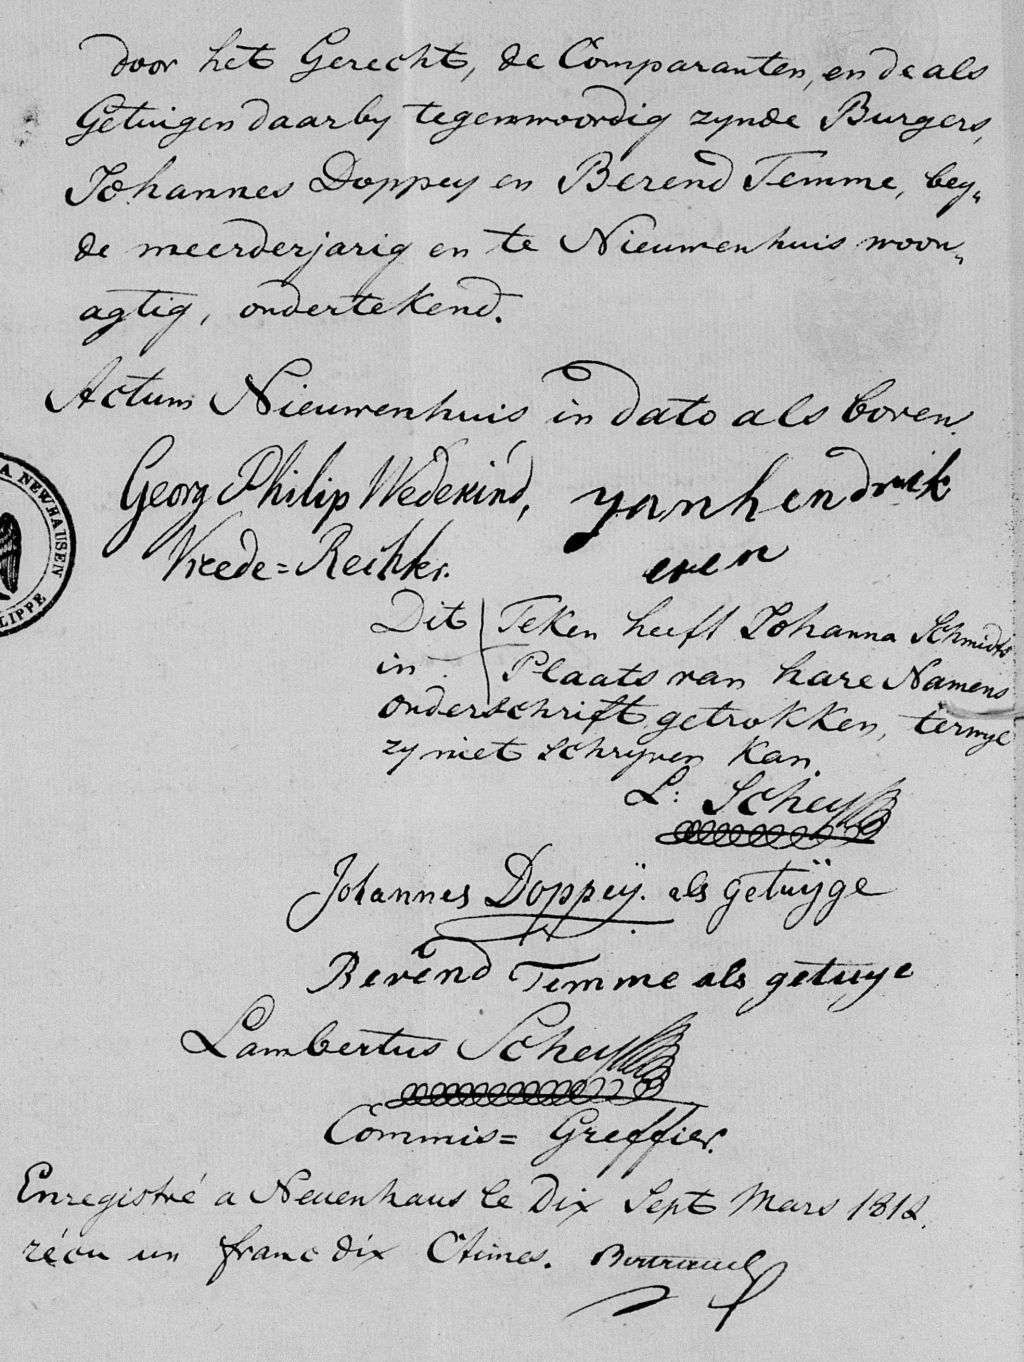 door het Gerecht, de Comparanten, en de als
Getuigen daarby tegenwoordig zynde Burgers,
Johannes Doppey en Berend Temme, bey„
de meerderjarig en te Nieuwenhuis woon„
agtig, ondertekend.
Actum Nieuwenhuis in dato als boven.
A. NEWHAUSEN
LIPPE
Georg Philip Wedekind, yanhendrik
Vreede=Rechter. even
Dit Teken heeft Johanna Schmidts
in Plaats van hare Namens
onderschrift getrokken, terwyl
zy niet schryven kan.
L: Schey
Johannes Doppeÿ. als getuÿge
Berend Temme als getuye
Lambertus Schey
Commis= Greffier.
Enregistré a Neuenhaus le Dix Sept Mars 1812.
récu un franc dix Ctimes.